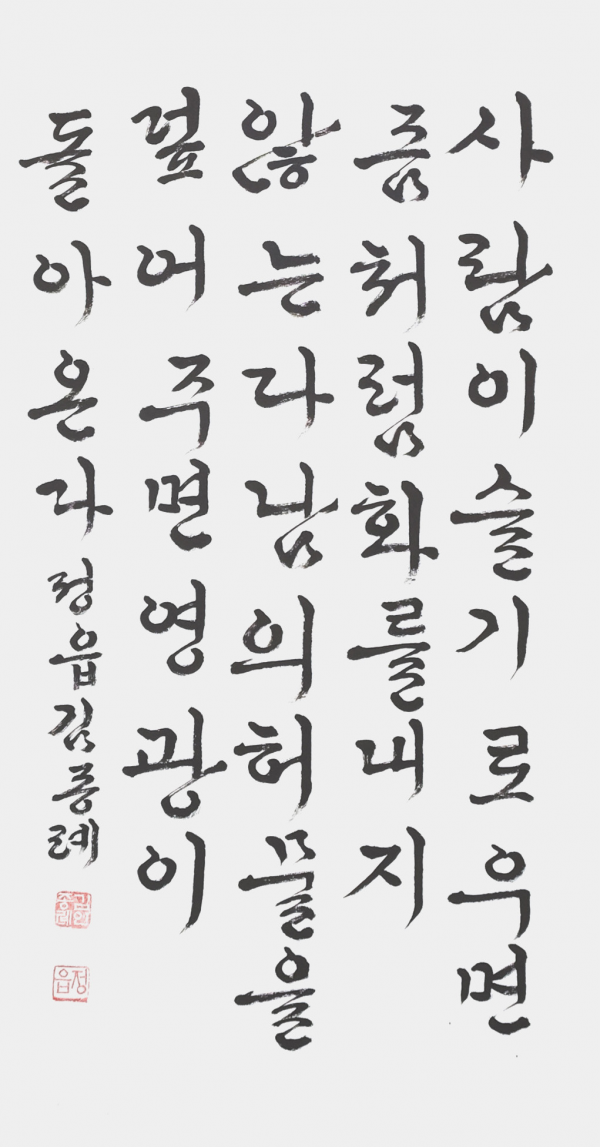 사람이슬기로우면
좀처럼화를내지
않는다남의허물을
덮어주면영광이
돌아온다 정읍김종례
정읍